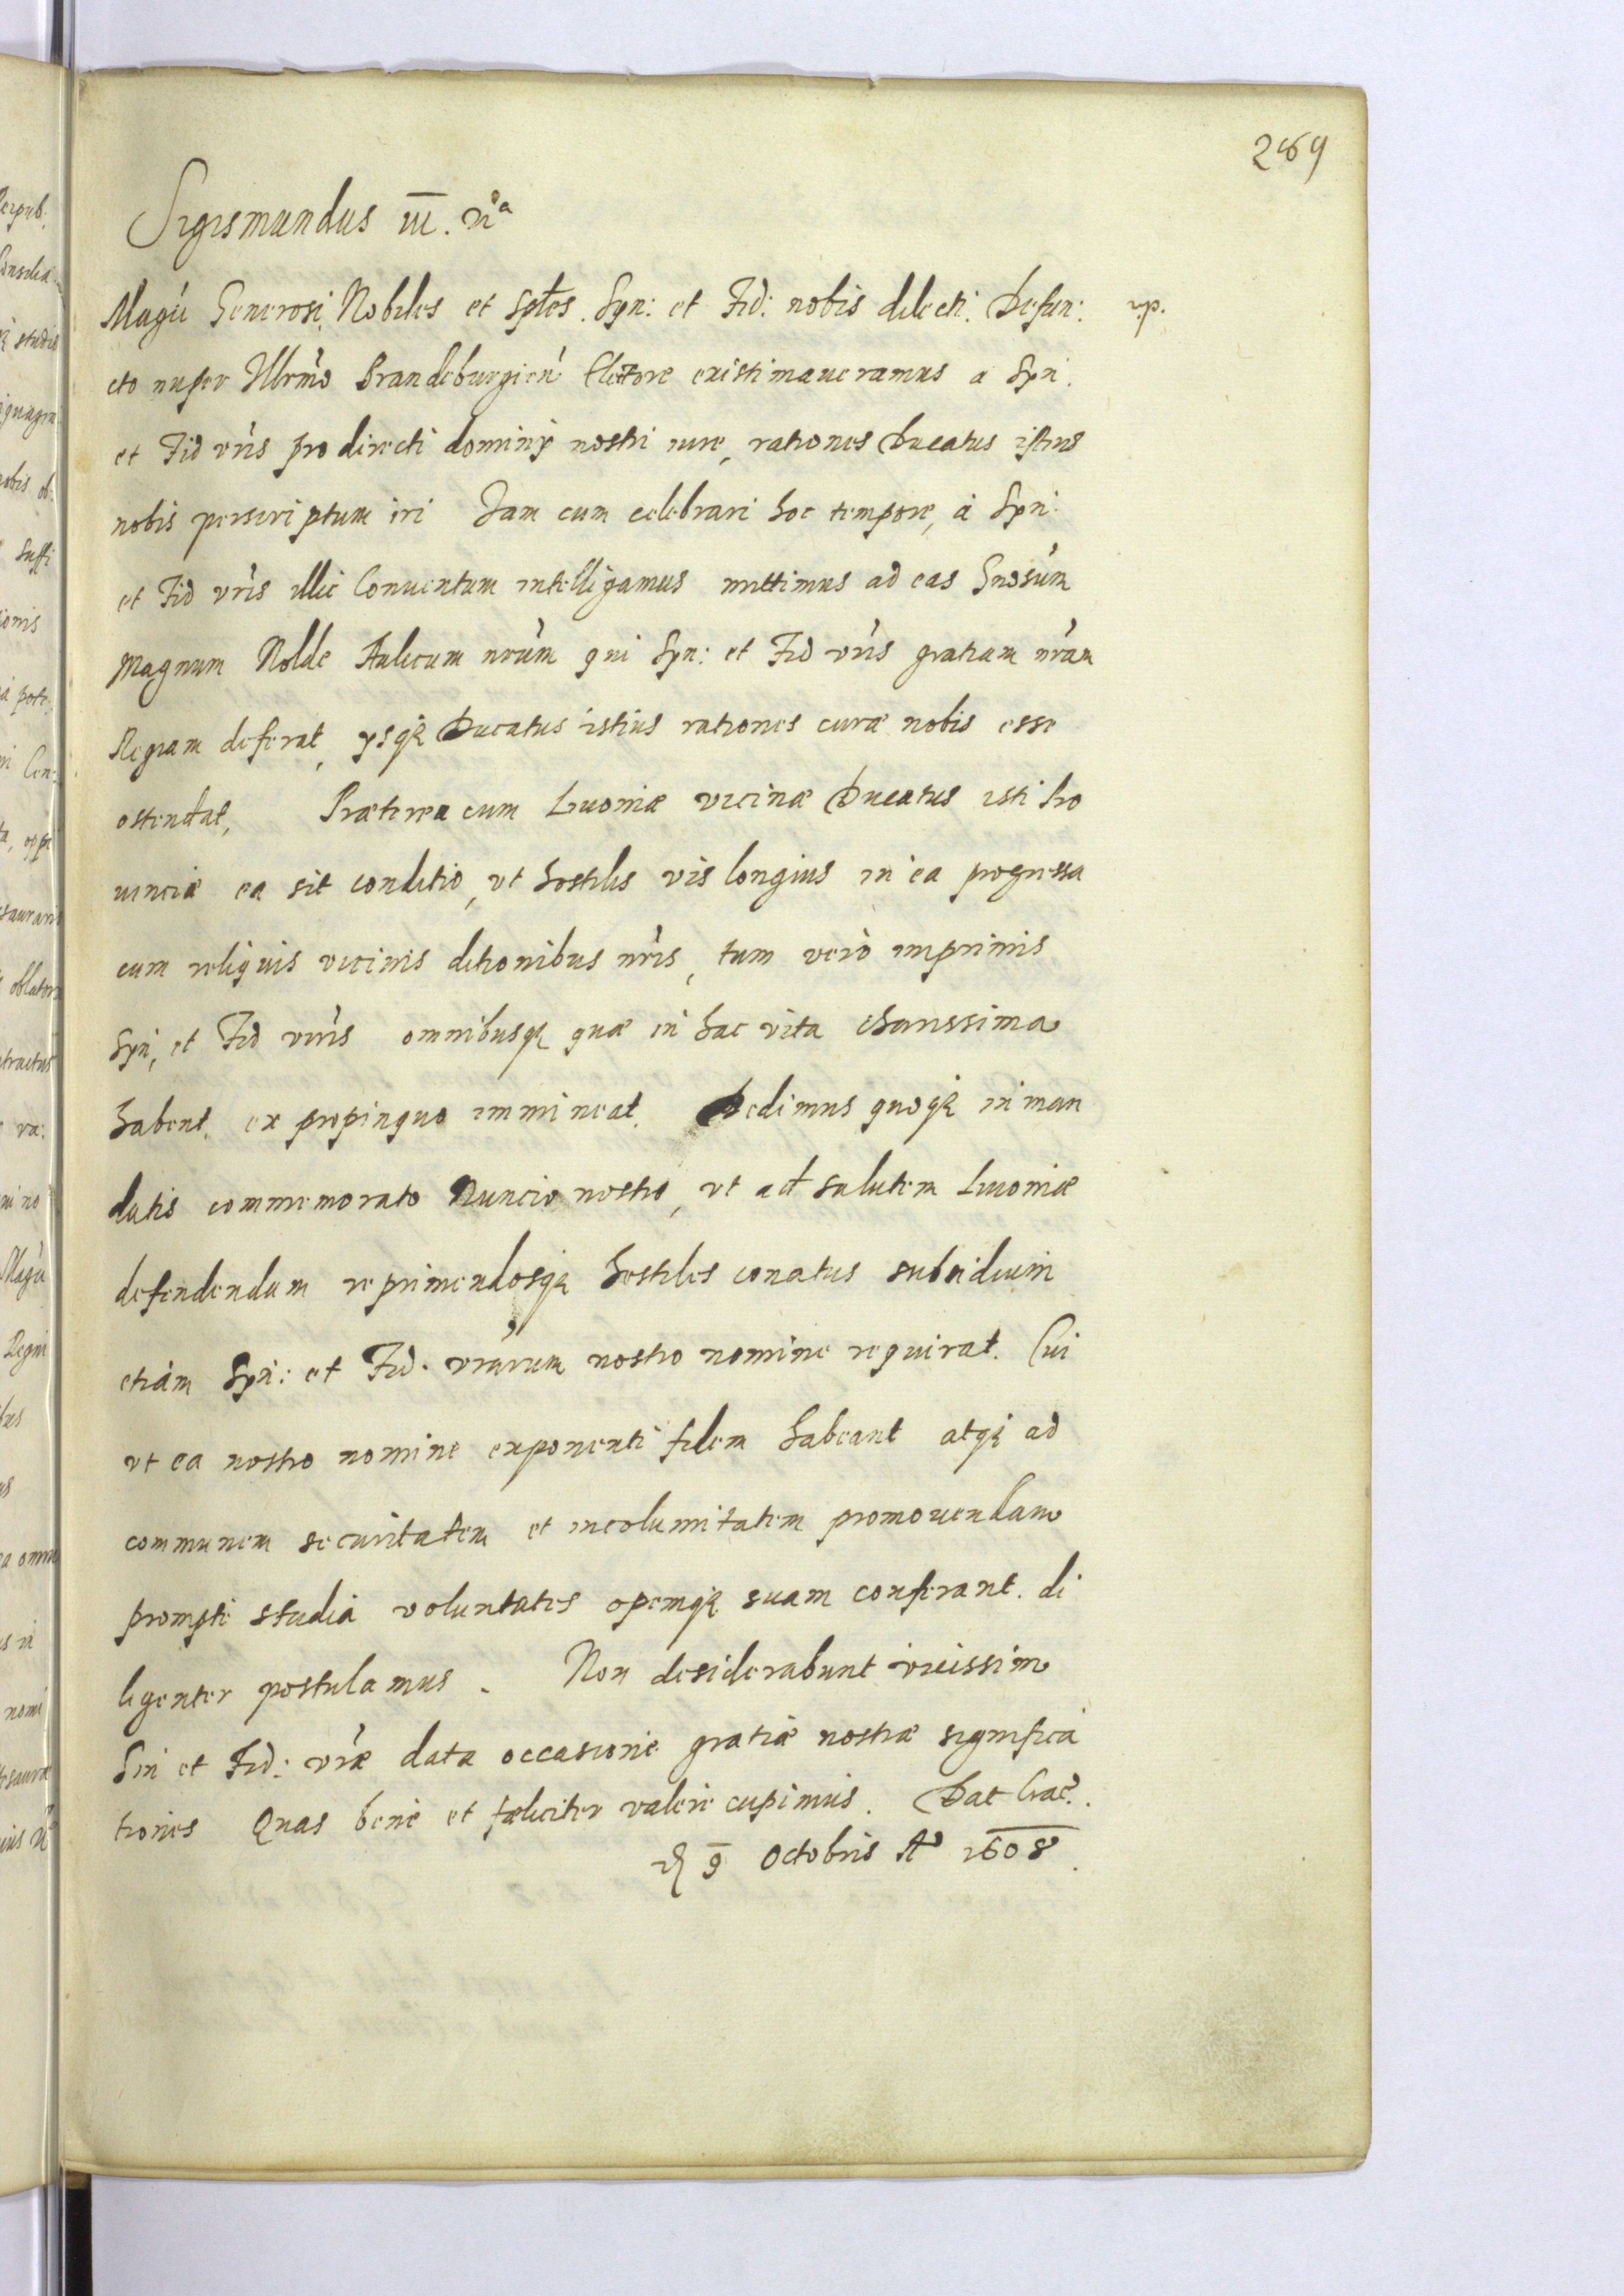 289
Sigismundus III. etc.ª
Magci Generosi, Nobiles et Sples. Syn: et Fid: nobis dilecti. Defun:
cto nuper Illrmo Brandeburgien Electore existimaueramus a Syn.
et Fid vris pro directi dominij nostri iure, rationes Ducatus istius
nobis perscriptum iri Jam cum celebrari hoc tempore, à Syn:
et Fid vris illic Conuentum intelligamus mittimus ad eas Gnosum
Magnum Nolde Aulicum nrum qui Syn: et Fid vris gratiam nram
Regiam deferat, ysq Ducatus istius rationes curæ nobis esse
ostendat, Præterea cum Liuoniæ vicinæ Ducatus isti Pro
uinciæ ea sit conditio, vt hostilis vis longius in ea progressa
cum reliquis vicinis ditionibus nris, tum verò imprimis
Syn, et Fid vris omnibusq quæ in hac vita charissima
habent, ex propinquo immineat. Dedimus quoq in man
datis commemorato Nuncio nostro, vt ad salutem Liuoniæ
defendendam reprimendosq hostiles conatus subsidium
etiam Syn: et Fid. vrarum nostro nomine requirat. Cui
vt ea nostro nomine exponenti fidem habeant atq ad
communem securitatem et incolumitatem promouendam
prompte studia voluntates opemq suam conferant. di
ligenter postulamus. Non desiderabunt vicissim
Sin et Fid: vræ data occasione gratiæ nostræ significa
tiones Quas bene et fæliciter valere cupimus. Dat Crac.
9 Octobris Aº 1608.